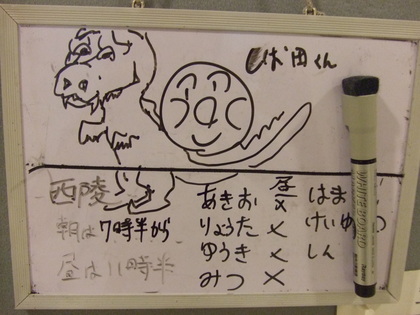 しば田くん
つるく
西陵
朝は7時半から
昼は11時半
昼
あきお ×
りょうた ×
ゆうき ×
みつ ×
はま
けいゆ
しん
WHITEBOARD